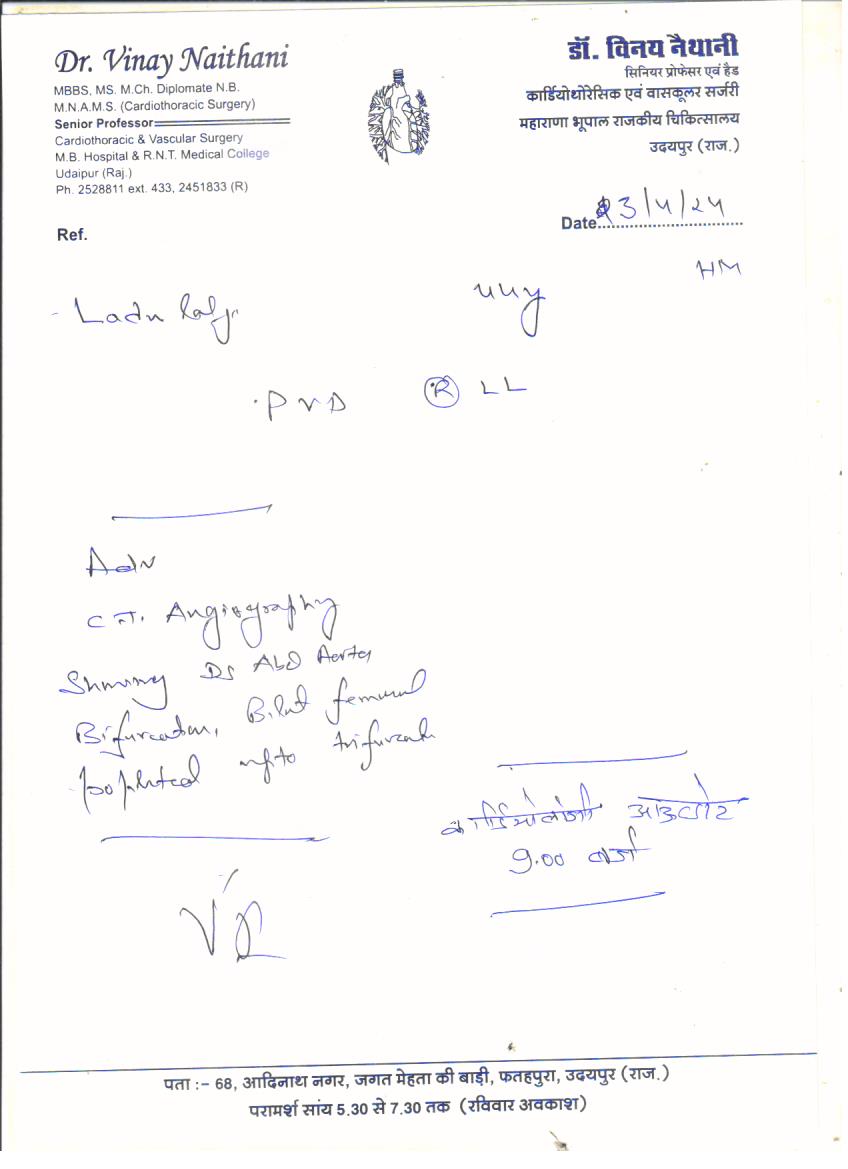 Dr. Vinay Naithani
MBBS, MS. M.Ch. Diplomate N.B.
M.N.A.M.S. (Cardiothoracic Surgery)
Senior Professor
Cardiothoracic & Vascular Surgery
M.B. Hospital & R.N.T. Medical College
Udaipur (Raj.)
Ph. 2528811 ext. 433, 2451833 (R)
डॉ. विनय नैथानी
सिनियर प्रोफेसर एवं हैड
कार्डियोथोरेसिक एवं वासकूलर सर्जरी
महाराणा भूपाल राजकीय चिकित्सालय
उदयपुर (राज.)
Date 3/4/24
Ref.
HM
Ladu Lalji
44y
PVD Ⓡ LL
Adv
C.T. Angiography
Abd Aorta
Bifurcation, Bilat femoral
popliteal upto
कार्डियोलोजी आऊटडोर
9.00 बजे
पता :– 68, आदिनाथ नगर, जगत मेहता की बाड़ी, फतहपुरा, उदयपुर (राज.)
परामर्श सांय 5.30 से 7.30 तक (रविवार अवकाश)